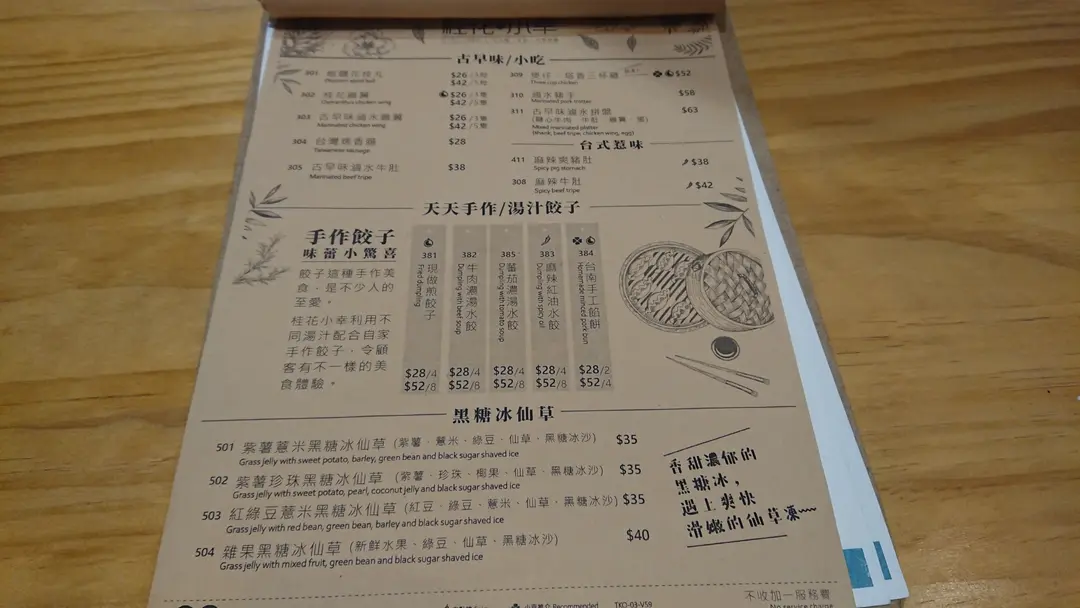 古早味/小吃
302 桂花雞翼 $26 /1隻
Osmanthus chicken wing $42 /3隻
303 古早味滷水雞翼 $26 /1隻
Marinated chicken wing $42 /5隻
304 台灣烤香腸 $28
Taiwanese sausage
305 古早味滷水牛肚 $38
Marinated beef tripe
309 三杯雞 $52
Three cup chicken
310 滷水豬手 $58
Marinated pork trotter
311 古早味滷水拼盤 $63
Mixed marinated platter
(Shank, beef tripe, chicken wing, egg)
台式惹味
411 麻辣爽豬肚 $38
Spicy pig stomach
308 麻辣牛肚 $42
Spicy beef tripe
天天手作/湯汁餃子
手作餃子
味蕾小驚喜
餃子這種手作美
食，是不少人的
至愛。
桂花小幸利用不
同湯汁配合自家
手作餃子，令顧
客有不一樣的美
食體驗。
381
現做煎餃子
Fried dumpling
$28/4
$52/8
382
牛肉濃湯水餃
Dumpling with beef soup
$28/4
$52/8
385
蕃茄濃湯水餃
Dumpling with tomato soup
$28/4
$52/8
383
麻辣紅油水餃
Dumpling with spicy oil
$28/4
$52/8
384
台南手工餡餅
Homemade minced pork bun
$28/2
$52/4
黑糖冰仙草
501 紫薯薏米黑糖冰仙草 (紫薯．薏米．綠豆．仙草．黑糖冰沙) $35
Grass jelly with sweet potato, barley, green bean and black sugar shaved ice
502 紫薯珍珠黑糖冰仙草 (紫薯．珍珠．椰果．仙草．黑糖冰沙) $35
Grass jelly with sweet potato, pearl, coconut jelly and black sugar shaved ice
503 紅綠豆薏米黑糖冰仙草 (紅豆．綠豆．薏米．仙草．黑糖冰沙) $35
Grass jelly with red bean, green bean, barley and black sugar shaved ice
504 雜果黑糖冰仙草 (新鮮水果、綠豆、仙草、黑糖冰沙) $40
Grass jelly with mixed fruit, green bean and black sugar shaved ice
香甜濃郁的
黑糖冰，
遇上爽快
滑嫩的仙草凍
Recommended TKO-03-V59
不收加一服務費
No service charge